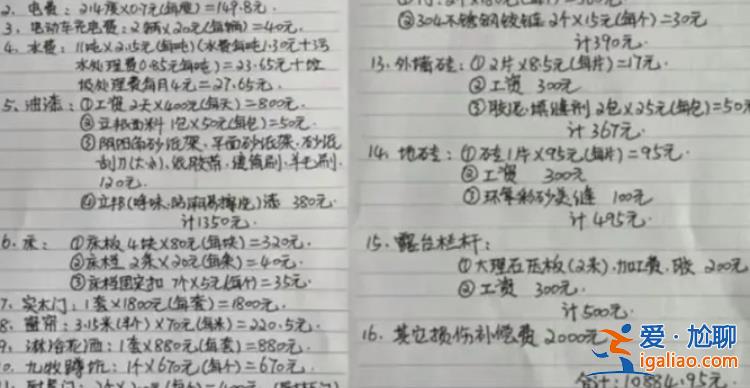 2、电费：214度×0.7元(每度)=149.8元.
3、电动车充电费：2辆×20元(每辆)=40元.
4、水费：11吨×2.15元(每吨)(水费每吨1.30元+污
水处理费0.85元每吨)=23.65元+垃
圾处理费每月4元=27.65元.
5、油漆：①工资 2天×400元(每天)=800元.
②立邦面料 1包×50元(每包)=50元.
③阴阳角砂纸架、平面砂纸架、砂纸
刮刀(大小)、纸胶带、滚筒刷、羊毛刷.
120元.
④立邦(净味、防潮易擦洗)漆 380元.
计1350元.
6、床：①床板 4块×80元(每块)=320元.
②床档 2条×20元(每条)=40元.
③床档固实扣 7个×5元(每个)=35元.
7、实木门：1套×1800元(每套)=1800元.
8、窗帘：3.15米(半个)×70元(每米)=220.5元.
9、淋浴花洒：1套×880元(每套)=880元.
10、九牧蹲坑：1个×670元(每个)=670元.
②304不锈钢铰链 2个×15元(每个)=30元
计390元.
13、外墙砖：①2片×8.5元(每片)=17元.
②工资 300元
③胶泥、填缝剂 2包×25元(每包)=50元
计 367元.
14、地砖：①砖1片×95元(每片)=95元.
②工资 300元
③环氧彩砂美缝 100元
计 495元.
15、露台栏杆：
①大理石压板(2米)、加工费、胶 200元
②工资 300元.
计500元.
16、其它损伤补偿费 2000元
合计：10884.95元
爱·尬聊
igaliao.com